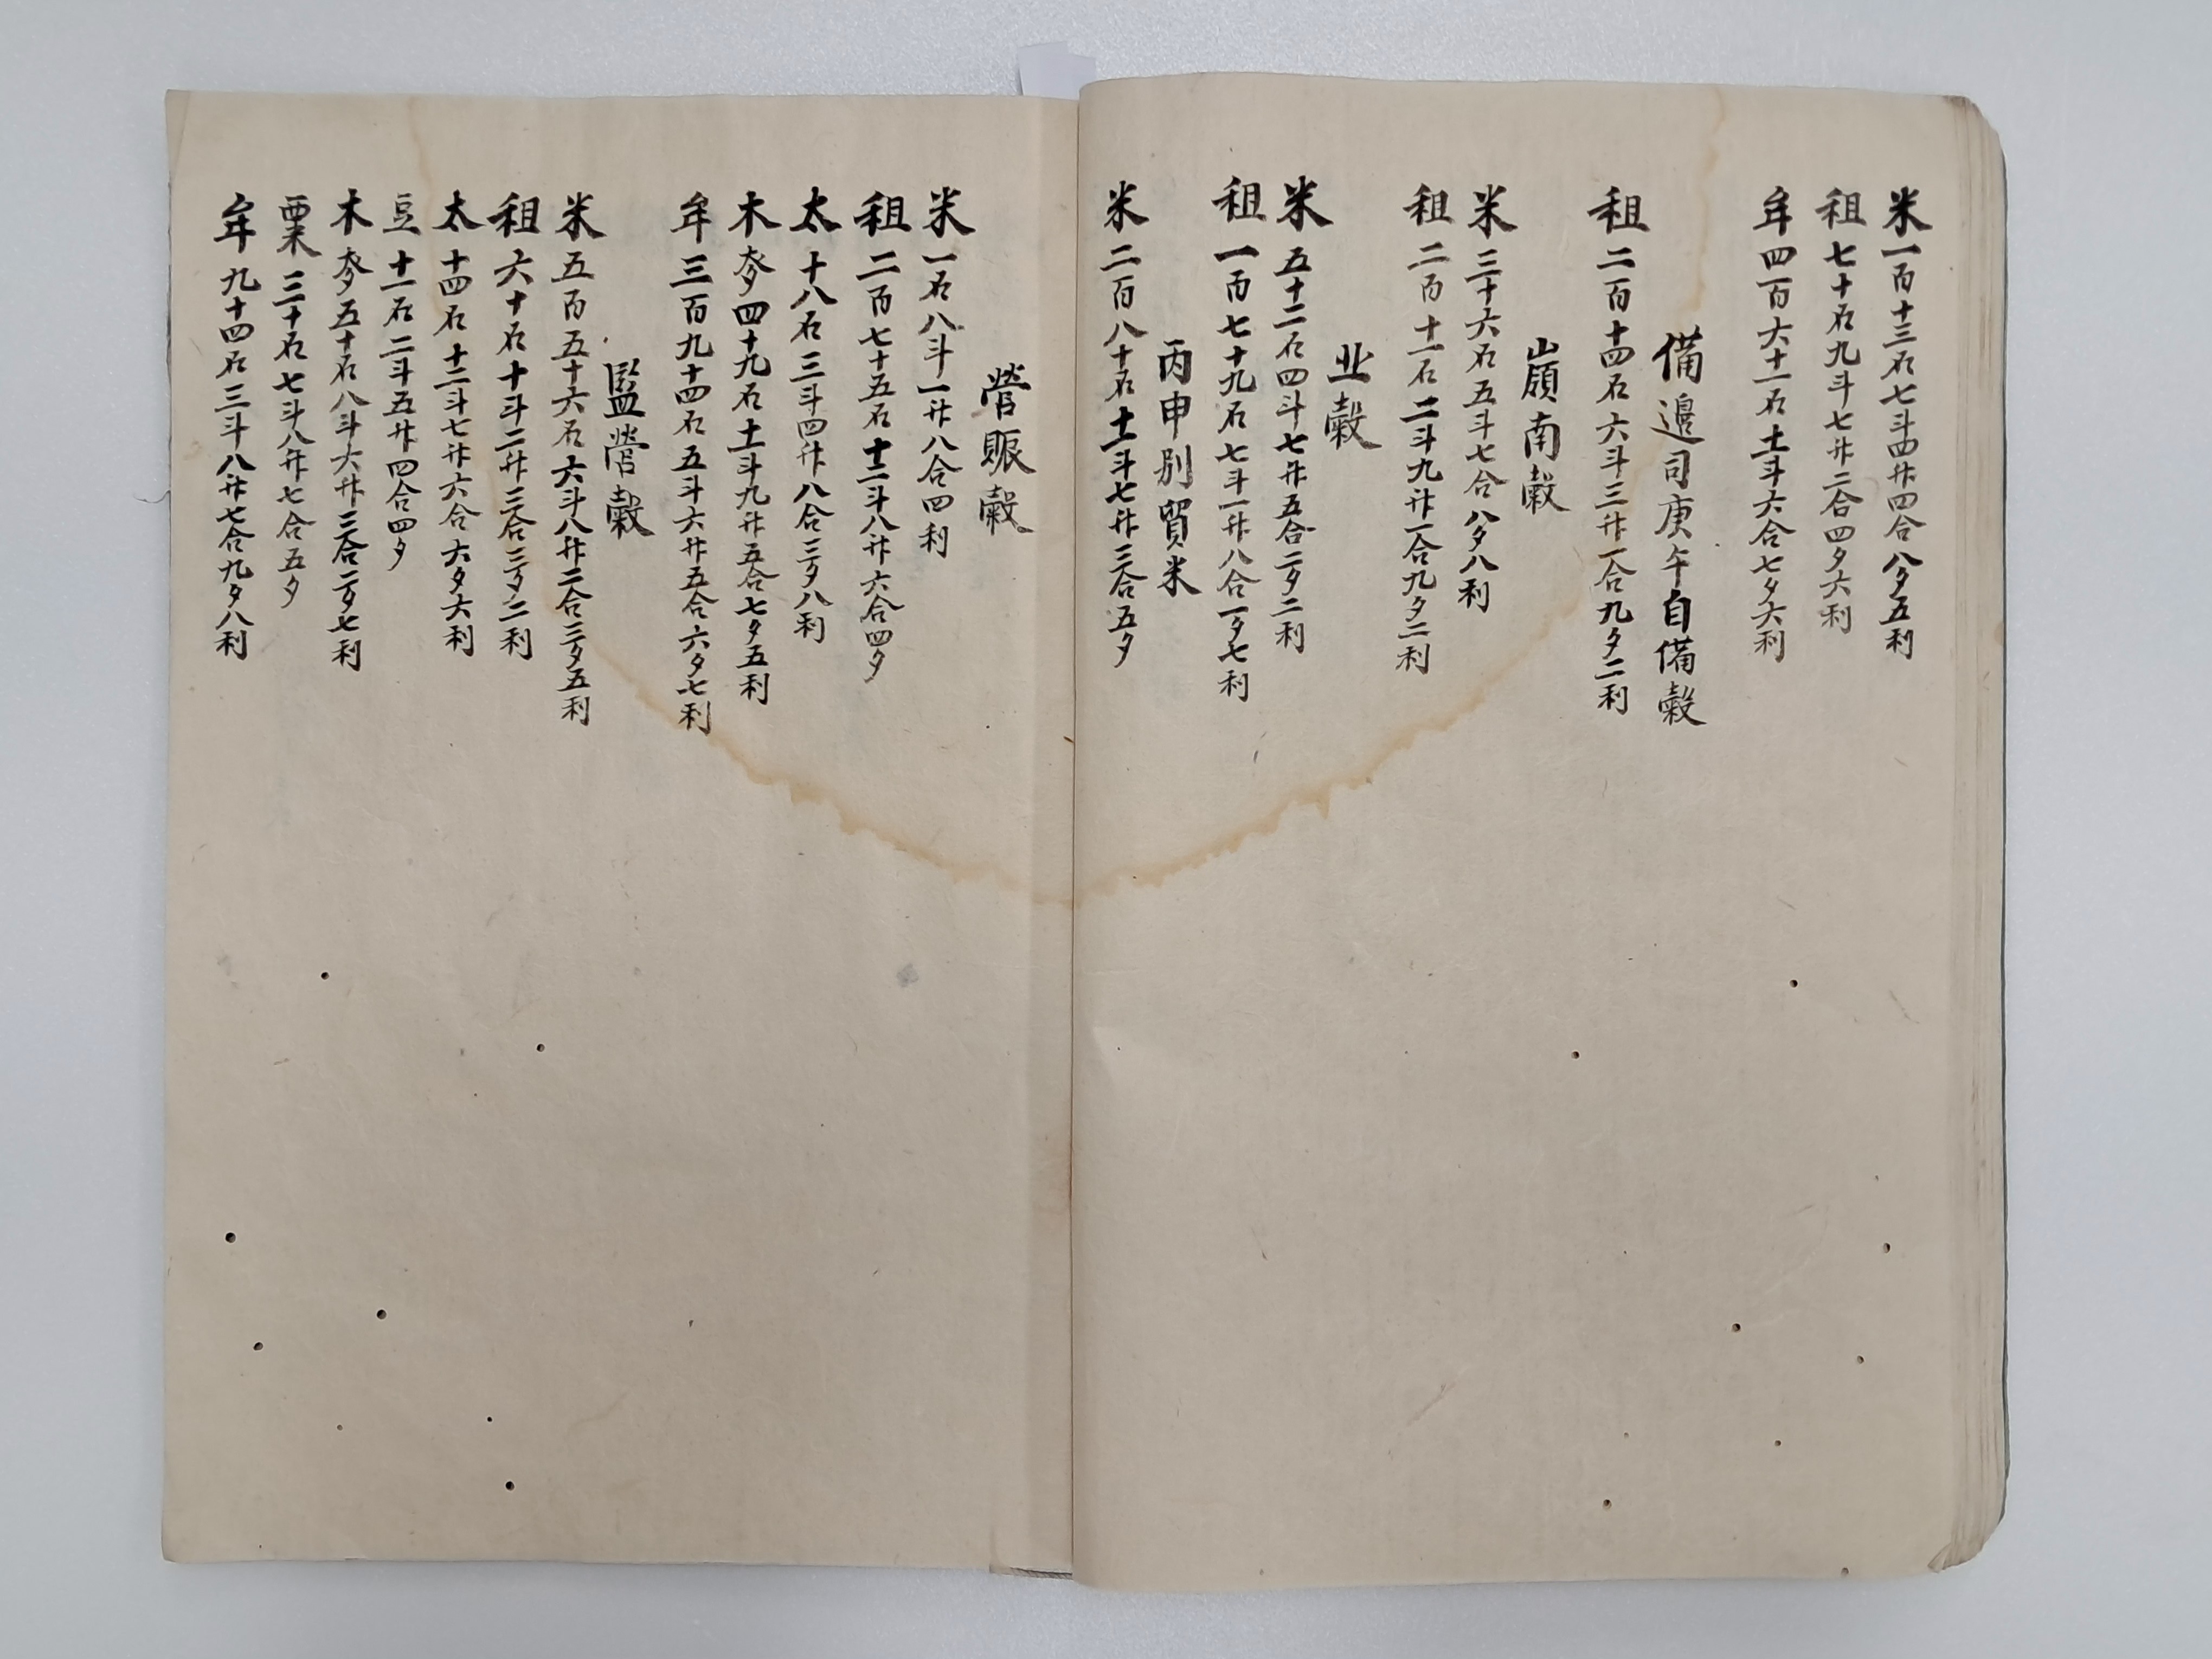 米一百十三石七斗四升四合八夕五利
租七十石九斗七升二合四夕六利
牟四百六十一石十一斗六合七夕六利
備邊司庚午自備穀
租二百十四石六斗三升一合九夕二利
嶺南穀
米三十六石五斗七合八夕八利
租二百十一石二斗九升一合九夕二利
业穀
米五十二石四斗七升五合二夕二利
租一百七十九石七斗一升八合一夕七利
丙申別貿米
米二百八十石十一斗七升三合五夕
營賑穀
米一石八斗一升八合四利
租二百七十五石十二斗八升六合四夕
太十八石三斗四升八合三夕八利
木麥四十九石十一斗九升五合七夕五利
牟三百九十四石五斗六升五合六夕七利
監營穀
米五百五十六石六斗八升二合三夕五利
租六十石十斗二升三合三夕二利
太十四石十二斗七升六合六夕六利
豆十一石二斗五升四合四夕
木麥五十石八斗六升三合二夕七利
粟三十石七斗八升七合五夕
牟九十四石三斗八升七合九夕八利